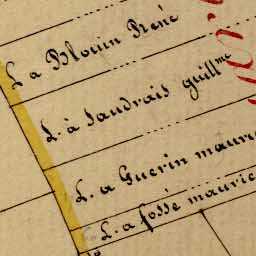 L a Blouin René
L. à Jaudrais guill.me
L. a Guerin mauric
L. a fossé maurice